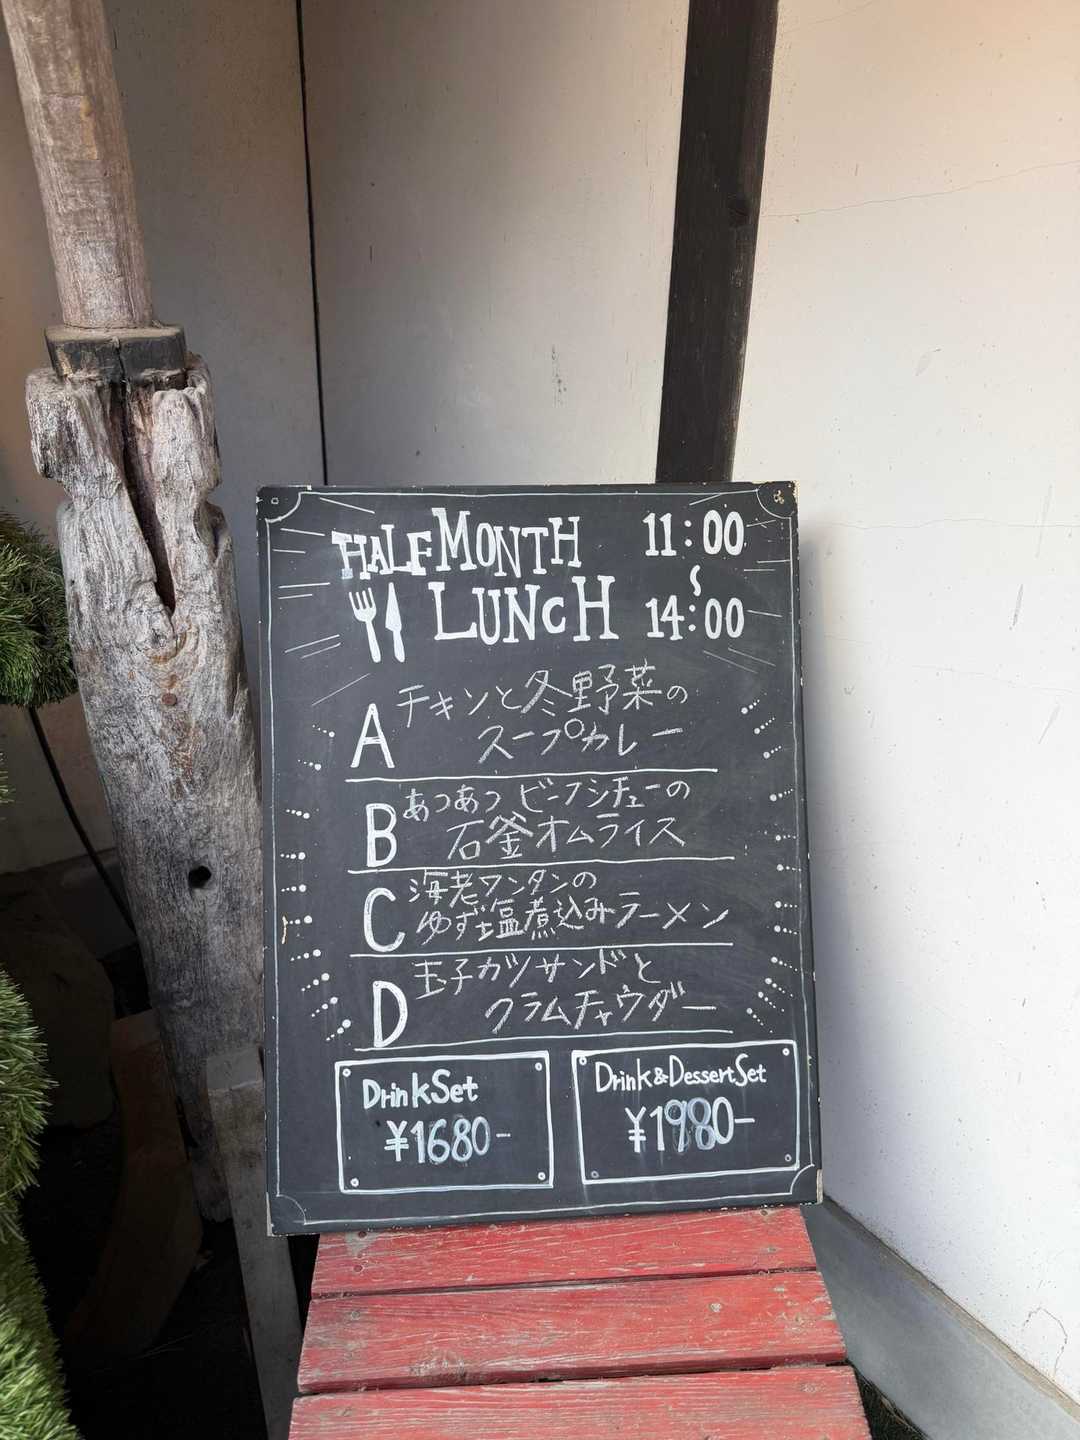 HALF MONTH
LUNCH
11:00
〜
14:00
A
チキンと冬野菜の
スープカレー
B
あつあつ ビーフシチューの
石釜オムライス
C
海老ワンタンの
ゆず塩煮込みラーメン
D
玉子カツサンドと
クラムチャウダー
Drink Set
¥1680-
Drink&Dessert Set
¥1980-